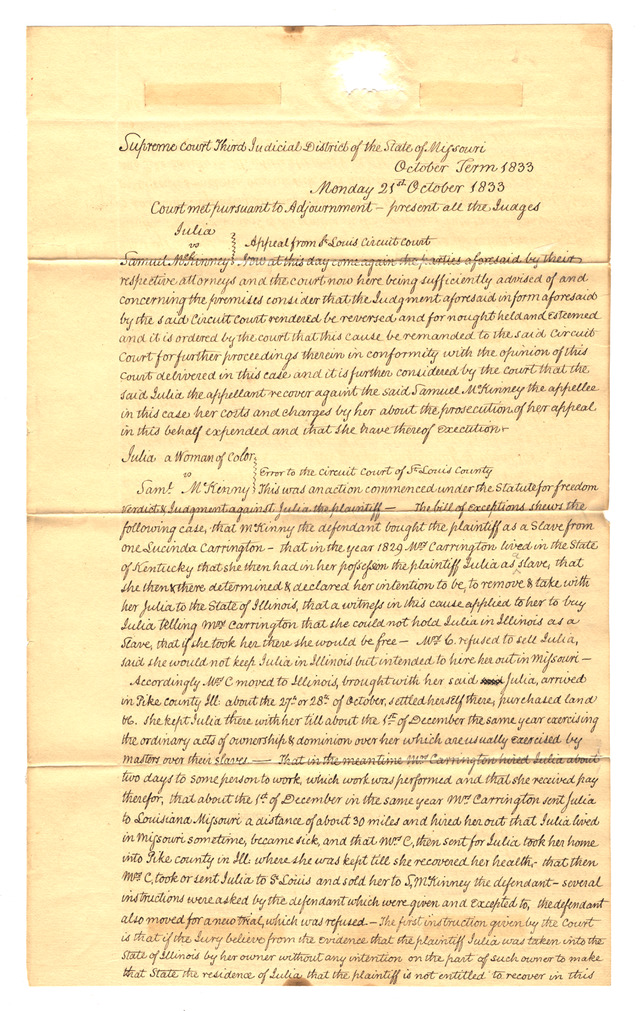 Supreme Court Third Judicial District of the State of Missouri
October Term 1833
Monday 21st October 1833
Court met pursuant to Adjournment – present all the Judges
Julia
vs
Appeal from St Louis Circuit Court
Samuel McKinney Now at this day come again the parties aforesaid by their
respective attorneys and the court now here being sufficiently advised of and
concerning the premises consider that the Judgment aforesaid in form aforesaid
by the said Circuit Court rendered be reversed and for nought held and Esteemed
and it is ordered by the court that this cause be remanded to the said Circuit
Court for further proceedings therein in conformity with the opinion of this
Court delivered in this case and it is further considered by the Court that the
said Julia the appellant recover againt the said Samuel McKinney the appellee
in this case her costs and charges by her about the prosecution of her appeal
in this behalf expended and that she have thereof Execution
Julia a Woman of Color
vs
Error to the Circuit Court of St Louis County
Saml McKenny This was an action commenced under the Statute for freedom
verdict & Judgment against Julia the plaintiff – The bill of Exceptions shews the
following case, that McKinny the defendant bought the plaintiff as a Slave from
one Lucinda Carrington – that in the year 1829 Mrs Carrington lived in the State
of Kentucky that she then had in her possession the plaintiff Julia as a slave, that
she then & there determined & declared her intention to be, to remove & take with
her Julia to the State of Illinois, that a witness in this cause applied to her to buy
Julia telling Mrs Carrington that she could not hold Julia in Illinois as a
Slave, that if she took her there she would be free – Mrs C. refused to sell Julia,
said she would not keep Julia in Illinois but intended to hire her out in Missouri –
Accordingly Mrs C moved to Illinois, brought with her said Julia, arrived
in Pike county Ill. about the 27th or 28th of October, settled herself there, purchased land
&c. she kept Julia there with her till about the 1st of December the same year exercising
the ordinary acts of ownership & dominion over her which are usually exercised by
masters over their slaves – That in the meantime Mrs Carrington hired Julia about
two days to some person to work, which work was performed and that she received pay
therefor, that about the 1st of December in the same year Mrs Carrington sent Julia
to Louisiana Missouri a distance of about 30 miles and hired her out that Julia lived
in Missouri sometime, became sick, and that Mrs C, then sent for Julia took her home
into Pike county in Ill. where she was kept till she recovered her health, – that then
Mrs C, took or sent Julia to St Louis and sold her to S, McKinney the defendant – several
instructions were asked by the defendant which were given and Excepted to, the defendant
also moved for a new trial, which was refused – The first instruction given by the Court
is that if the Jury believe from the Evidence that the plaintiff Julia was taken into the
State of Illinois by her owner without any intention on the part of such owner to make
that State the residence of Julia that the plaintiff is not entitled to recover in this